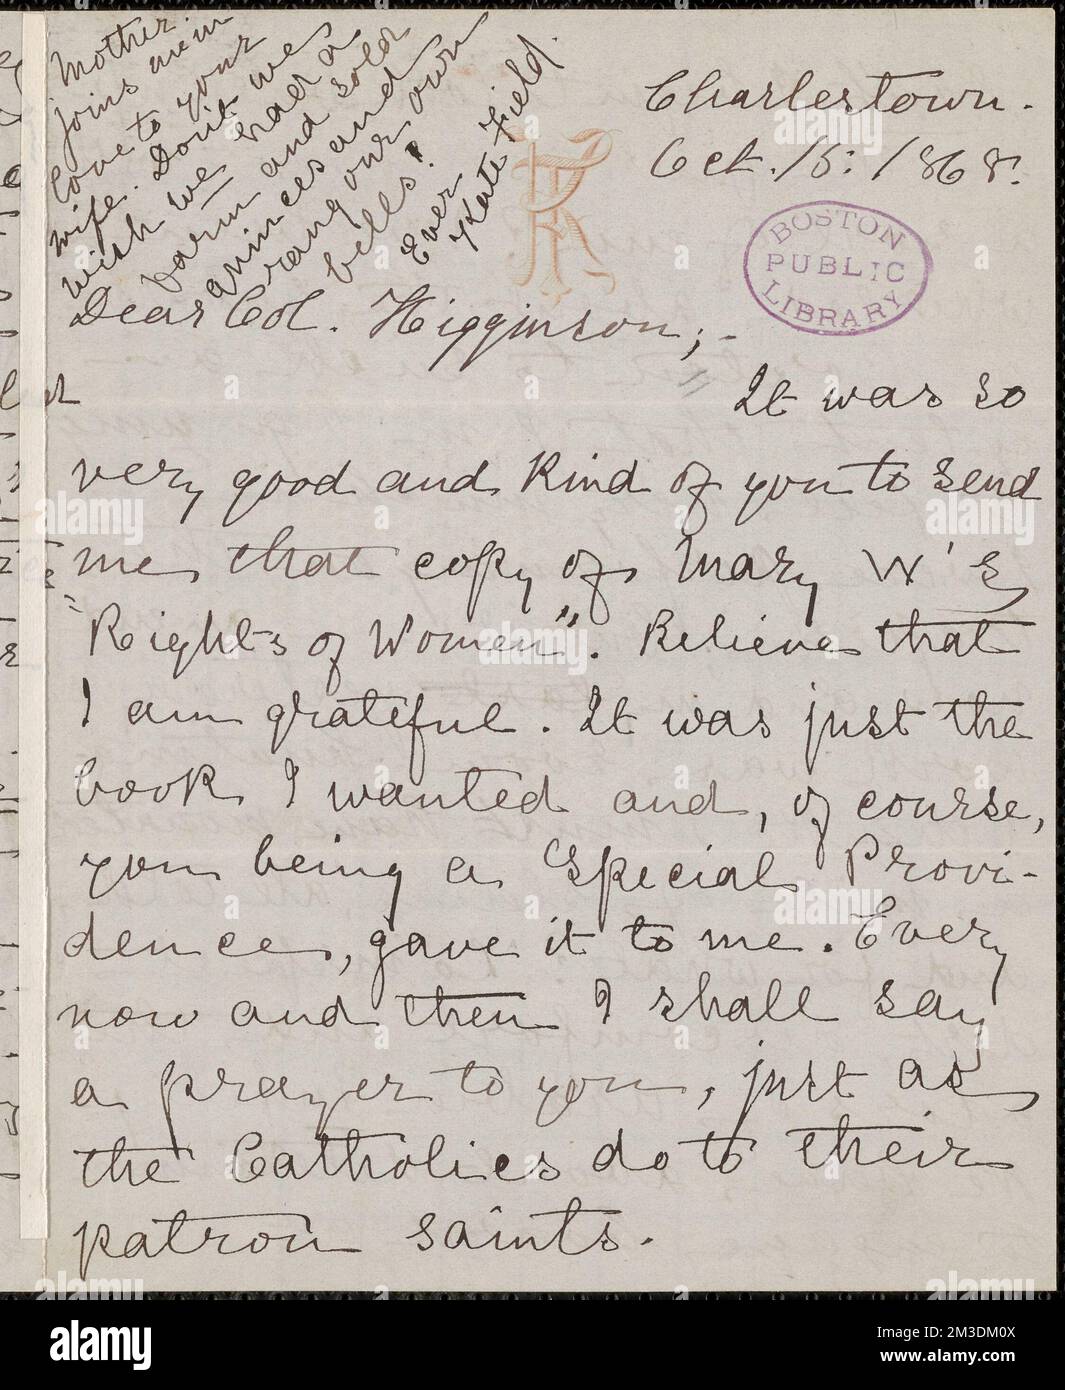 Mother
joins me in
love to your
wife. Don't we
wish we had a
farm and sold
quinces and
rang our own
bells!
Ever
Kate Field.
Charlestown.
Oct. 15: 1868.
KF
BOSTON
PUBLIC
LIBRARY
Dear Col. Higginson;-
It was so
very good and kind of you to send
me that copy of Mary W's
"Rights of Women". Believe that
I am grateful. It was just the
book I wanted and, of course,
you being a Special Provi-
dence, gave it to me. Every
now and then I shall say
a prayer to you, just as
the Catholics do to their
patron saints.
alamy
Image ID: 2M3DM0X
www.alamy.com